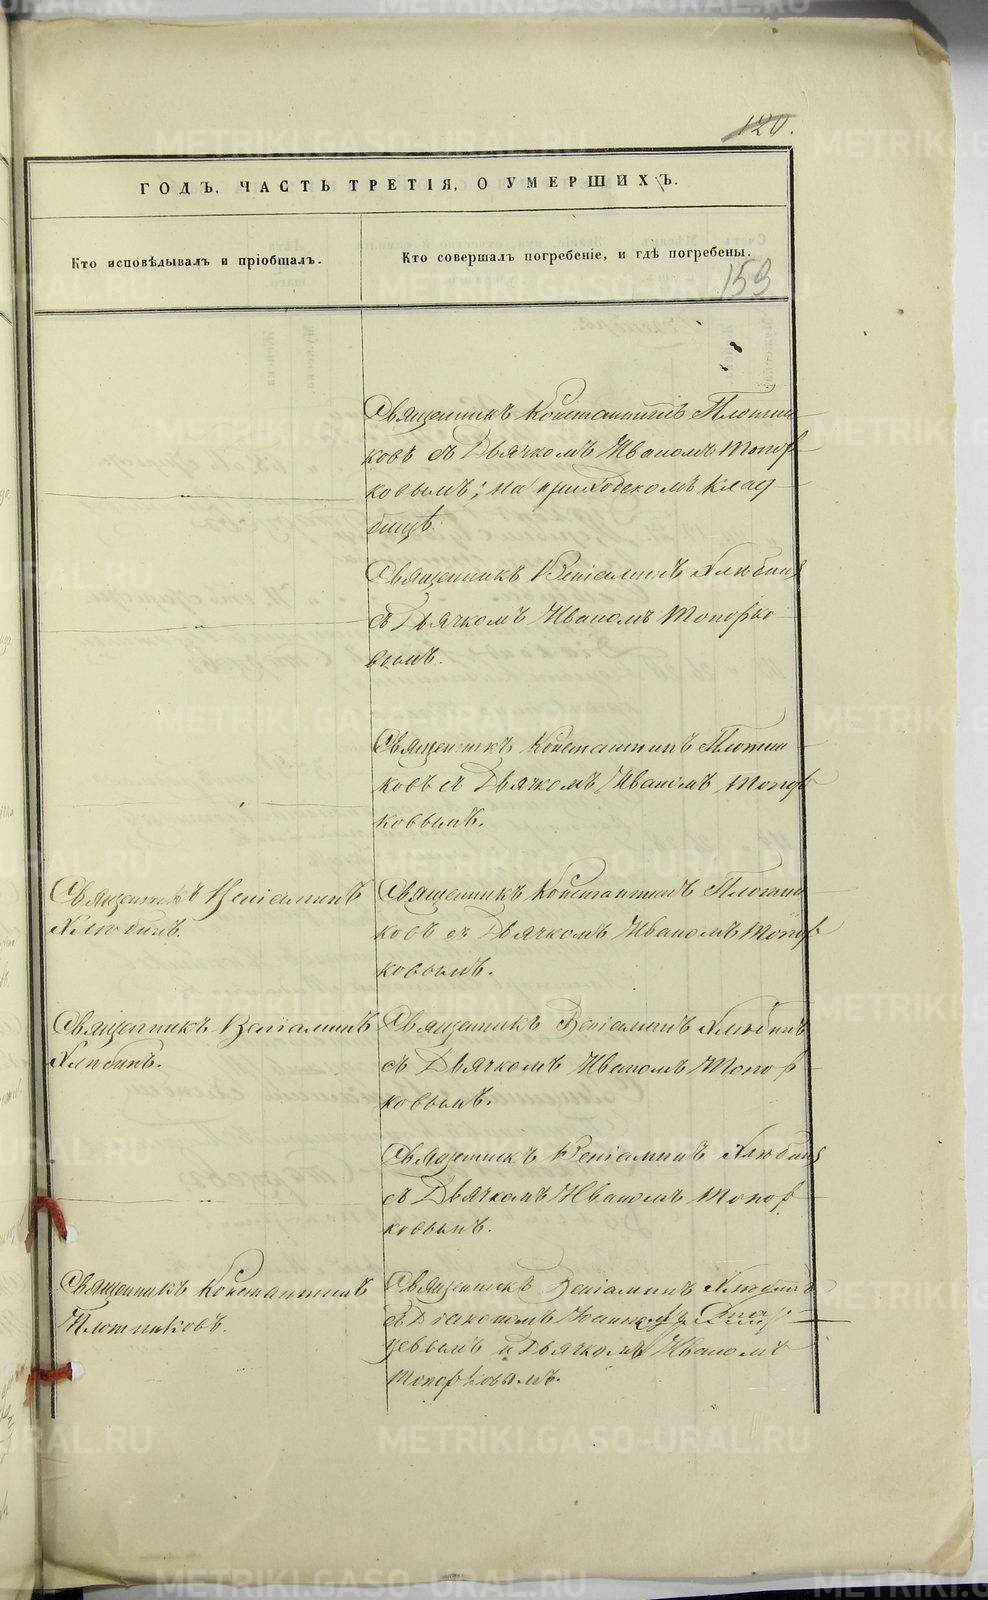 120.
ГОДЪ, ЧАСТЬ ТРЕТІЯ, О УМЕРШИХЪ.
Кто исповѣдывалъ и пріобщалъ.
Кто совершалъ погребеніе, и гдѣ погребены.
159
Священникъ Константинъ Плотни
ковъ съ Дьячкомъ Иваномъ Топор
ковымъ; на приходскомъ клад
бищѣ.
Священникъ Веніаминъ Хлюбинъ
съ Дьячкомъ Иваномъ Топорко
вымъ.
Священникъ Константинъ Плотни
ковъ съ Дьячкомъ Иваномъ Топор
ковымъ.
Священникъ Веніаминъ
Хлюбинъ.
Священникъ Константинъ Плотни
ковъ съ Дьячкомъ Иваномъ Топор
ковымъ.
Священникъ Веніаминъ
Хлюбинъ.
Священникъ Веніаминъ Хлюбинъ
съ Дьячкомъ Иваномъ Топор
ковымъ.
Священникъ Веніаминъ Хлюбинъ
съ Дьячкомъ Иваномъ Топор
ковымъ.
Священникъ Константинъ
Плотниковъ.
Священникъ Веніаминъ Хлюбинъ
съ Діакономъ
цевымъ и Дьячкомъ Иваномъ
Топорковымъ.
METRIKI.GASO-URAL.RU